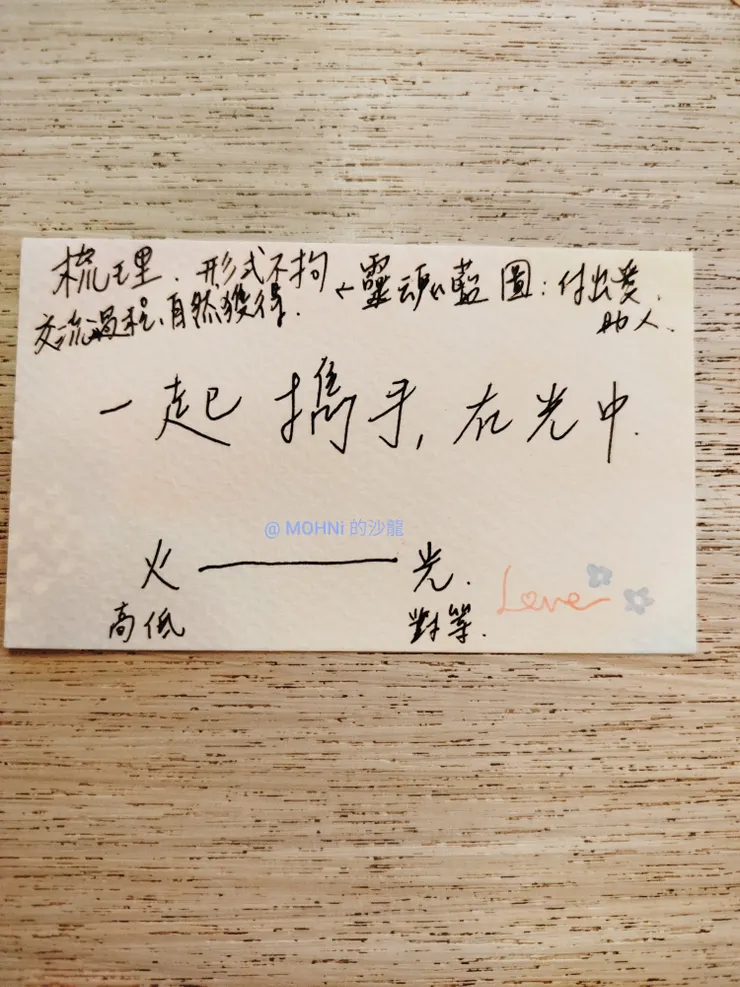 梳理. 形式不拘 ← 靈魂藍圖: 付出愛.
交流過程, 自然獲得. 助人.
一起攜手, 在光中.
@ MOHNi 的沙龍
火 —— 光.
高低 對等.
Love